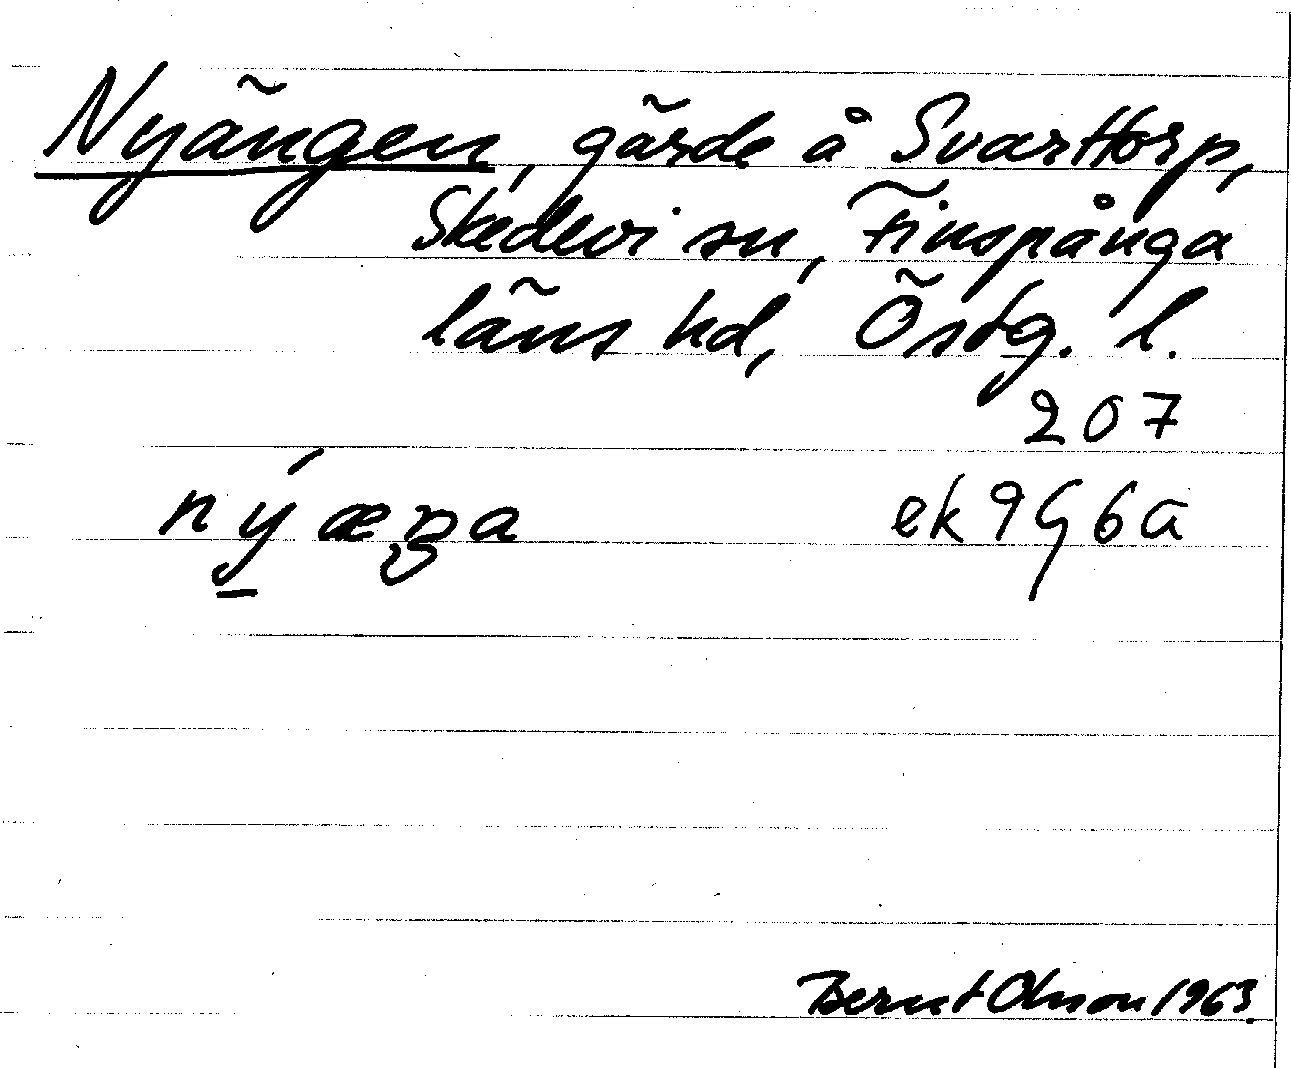 Nyängen, gärde å Svarttorp,
Skedevi sn, Finspånga
läns hd, Östg. l.
207
nýæŋa ek 9G6a
Bernt Olsson 1963.